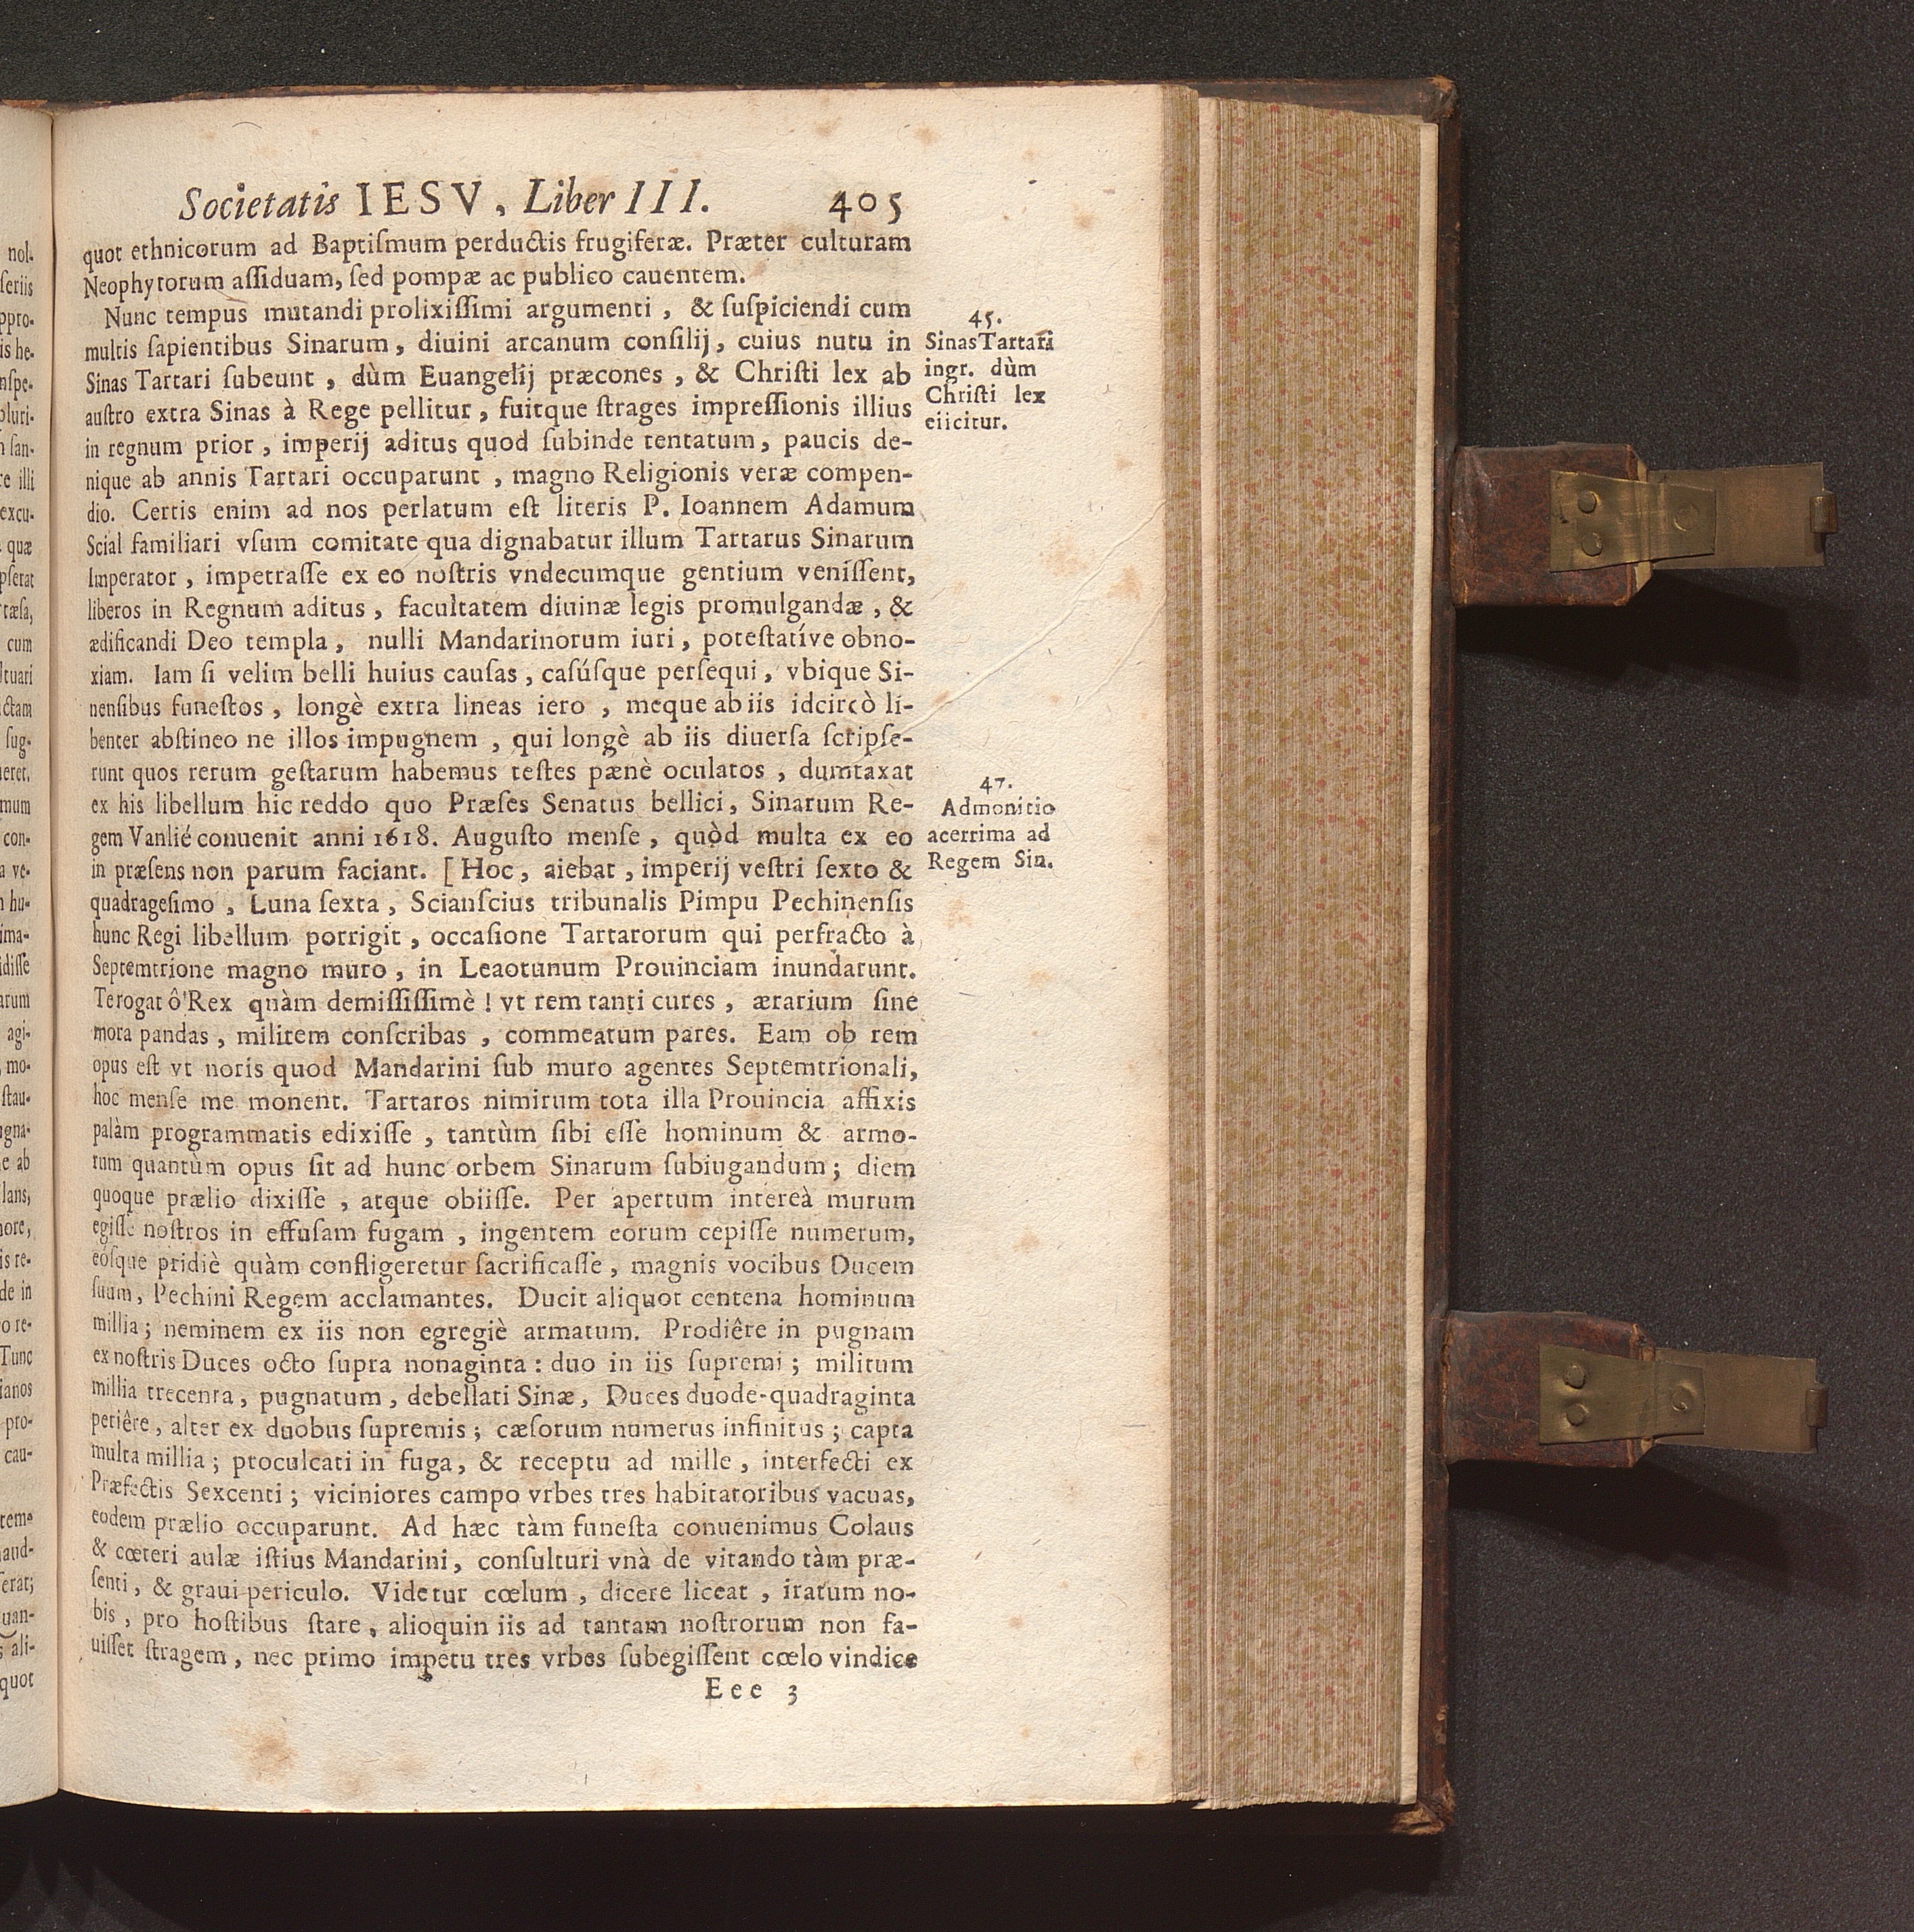 Societatis IESV, Liber III. 405
quot ethnicorum ad Baptiſmum perductis frugiferæ. Præter culturam
Neophytorum aſſiduam, ſed pompæ ac publico cauentem.
Nunc tempus mutandi prolixiſſimi argumenti, & ſuſpiciendi cum
multis ſapientibus Sinarum, diuini arcanum conſilij, cuius nutu in
Sinas Tartari ſubeunt, dùm Euangelij præcones, & Chriſti lex ab
auſtro extra Sinas à Rege pellitur, fuitque ſtrages impreſſionis illius
in regnum prior, imperij aditus quod ſubinde tentatum, paucis de-
nique ab annis Tartari occuparunt, magno Religionis veræ compen-
dio. Certis enim ad nos perlatum eſt literis P. Ioannem Adamum
Scial familiari vſum comitate qua dignabatur illum Tartarus Sinarum
Imperator, impetraſſe ex eo noſtris vndecumque gentium veniſſent,
liberos in Regnum aditus, facultatem diuinæ legis promulgandæ, &
ædificandi Deo templa, nulli Mandarinorum iuri, poteſtatíve obno-
xiam. Iam ſi velim belli huius cauſas, caſúſque perſequi, vbique Si-
nenſibus funeſtos, longè extra lineas iero, meque ab iis idcircò li-
benter abſtineo ne illos impugnem, qui longè ab iis diuerſa ſcripſe-
runt quos rerum geſtarum habemus teſtes pænè oculatos, dumtaxat
ex his libellum hic reddo quo Præſes Senatus bellici, Sinarum Re-
gem Vanlié conuenit anni 1618. Auguſto menſe, quòd multa ex eo
in præſens non parum faciant. [Hoc, aiebat, imperij veſtri ſexto &
quadrageſimo, Luna ſexta, Scianſcius tribunalis Pimpu Pechinenſis
hunc Regi libellum porrigit, occaſione Tartarorum qui perfracto à
Septemtrione magno muro, in Leaotunum Prouinciam inundarunt.
Te rogat ô Rex quàm demiſſiſſimè! vt rem tanti cures, ærarium ſine
mora pandas, militem conſcribas, commeatum pares. Eam ob rem
opus eſt vt noris quod Mandarini ſub muro agentes Septemtrionali,
hoc menſe me monent. Tartaros nimirum tota illa Prouincia affixis
palàm programmatis edixiſſe, tantùm ſibi eſſe hominum & armo-
rum quantùm opus ſit ad hunc orbem Sinarum ſubiugandum; diem
quoque prælio dixiſſe, atque obiiſſe. Per apertum intereà murum
egiſſe noſtros in effuſam fugam, ingentem eorum cepiſſe numerum,
eóſque pridiè quàm confligeretur ſacrificaſſe, magnis vocibus Ducem
ſuum, Pechini Regem acclamantes. Ducit aliquot centena hominum
millia; neminem ex iis non egregiè armatum. Prodiêre in pugnam
ex noſtris Duces octo ſupra nonaginta: duo in iis ſupremi; militum
millia trecenta, pugnatum, debellati Sinæ, Duces duode-quadraginta
periêre, alter ex duobus ſupremis; cæſorum numerus infinitus; capta
multa millia; proculcati in fuga, & receptu ad mille, interfecti ex
Præfectis Sexcenti; viciniores campo vrbes tres habitatoribus vacuas,
eodem prælio occuparunt. Ad hæc tàm funeſta conuenimus Colaus
& cœteri aulæ iſtius Mandarini, conſulturi vnà de vitando tàm præ-
ſenti, & graui periculo. Videtur cœlum, dicere liceat, iratum no-
bis, pro hoſtibus ſtare, alioquin iis ad tantam noſtrorum non fa-
uiſſet ſtragem, nec primo impetu tres vrbes ſubegiſſent cœlo vindice
Eee 3
45.
Sinas Tartari
ingr. dùm
Chriſti lex
eiicitur.
47.
Admonitio
acerrima ad
Regem Sin.